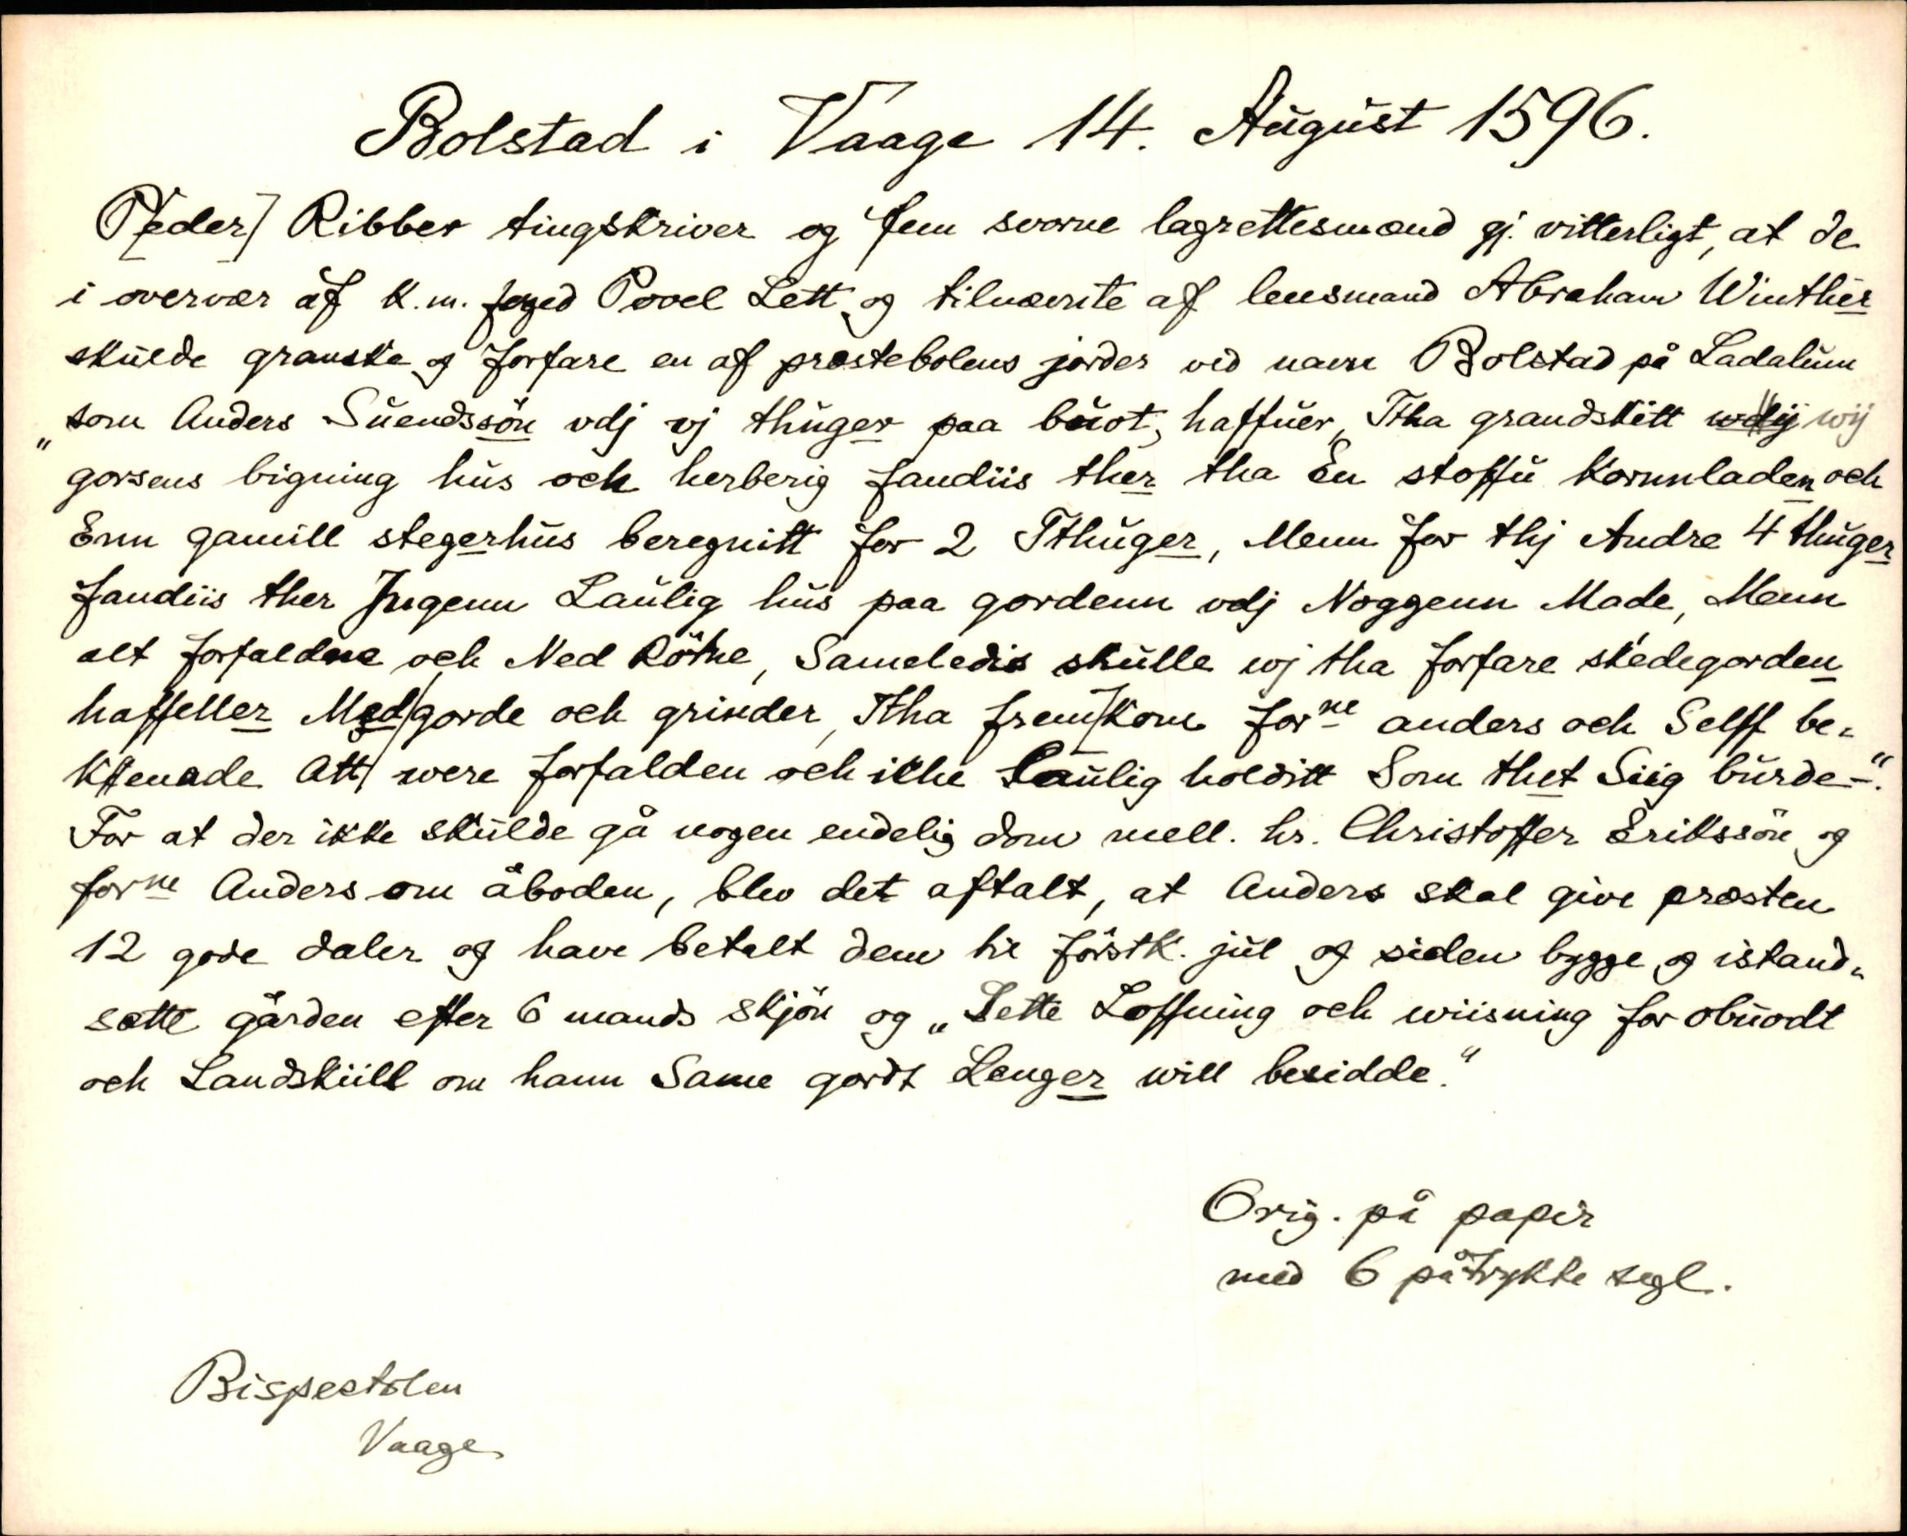 Bolstad i Vaage 14. August 1596.
P[eder] Ribber tingskriver og fem svorne lagrettesmænd gj. vitterligt, at de
i overvær af k.m. foged Povel Lett og tilnævnte af lensmand Abraham Winther
skulde granske og forfare en af præstebolens jorder ved navn Bolstad på Ladalum
som Anders Suendssön vdj vj thuger paa buot, haffuer, Ttha grandskitt wij
"gorsens bigning hus och herberig fandiis ther tha En stoffu kornnladen och
Enn gamill stegerhus beregnitt for 2 Tthuger, Menn for thj Andre 4 thuger
fandiis ther Jngenn Laulig hus paa gordenn vdj Noggenn Made, Menn
alt forfaldne och Ned Röthe, Sameledis skulle wj tha forfare skedegorden
haffeller Med gorde och grinder, Ttha frem kom forne anders och Selff be-
kenade Att were forfalden och ikhe Laulig holditt Som thet Siig burde—".
For at der ikke skulde gå nogen endelig dom mell. hr. Christoffer Erikssön og
forne Anders om åboden, blev det aftalt, at Anders skal give præsten
12 gode daler og have betalt dem til förstk. jul og siden bygge og istand-
sætte gården efter 6 mands skjön og „Sette Loffning och wiisning for obuodt
och Landskiill om hann Same gordt Lenger will besidde."
Orig. på papir
med 6 påtrykte segl.
Bispestolen
Vaage